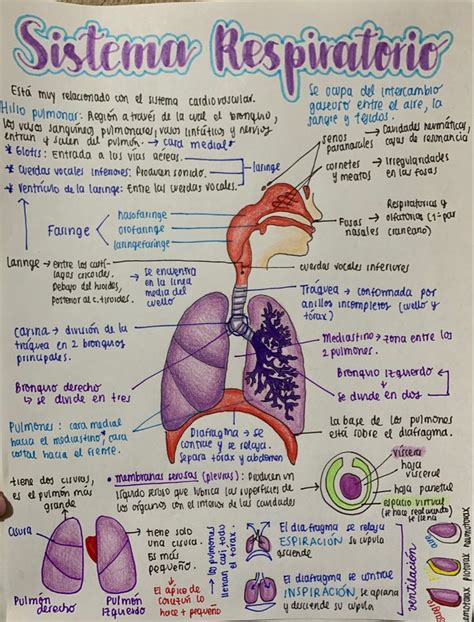 Sistema Respiratorio
Está muy relacionado con el sistema cardiovascular.
Hilio pulmonar: Región a través de la cual el bronquio,
los vasos sanguíneos pulmonares, vasos linfáticos y nervios
entran y salen del pulmón. → cara medial
* Glotis: Entrada a las vías aéreas.
* Cuerdas vocales inferiores: Producen sonido.
* Ventrículo de la laringe: Entre las cuerdas vocales.
laringe
Se ocupa del intercambio
gaseoso entre el aire, la
sangre y tejidos.
senos
paranasales
→ Cavidades neumáticas,
cajas de resonancia
cornetes
y meatos
→ Irregularidades
en las fosas
Faringe
nasofaringe
orofaringe
laringefaringe
Fosas
nasales
→ Respiratorias y
olfatorias (1er par
craneano)
Laringe → entre los cartí-
lagos cricoides.
Debajo del hioides,
Posterior al c. tiroides.
→ se encuentra
en la línea
media del
cuello
cuerdas vocales inferiores
Traquea → conformada por
anillos incompletos (cuello y
tórax)
carina → división de la
tráquea en 2 bronquios
principales.
Mediastino → zona entre los
2 pulmones.
Bronquio derecho
↳ se divide en tres
Bronquio izquierdo
↳ se divide en dos
Pulmones: cara medial
hacia el mediastino, cara
costal hacia el frente.
Diafragma → se
contrae y se relaja.
separa tórax y abdomen
la base de los pulmones
está sobre el diafragma.
tiene dos cisuras,
es el pulmón más
grande
• membranas serosas (pleuras): Producen un
líquido seroso que lubrica las superficies de
los órganos con el interior de las cavidades
víscera
hoja
visceral
hoja parietal
espacio virtual
se llena
cisura
Pulmón
derecho
Pulmón
Izquierdo
→ tiene solo
una cisura.
Es más
pequeño.
↓ El ápice de
corazón lo
hace + pequeño
→ los pulmones
llenan casi todo
el tórax.
El diafragma se relaja
ESPIRACIÓN su cúpula
asciende
El diafragma se contrae
INSPIRACIÓN, se aplana
y desciende su cúpula
ventilación
aire